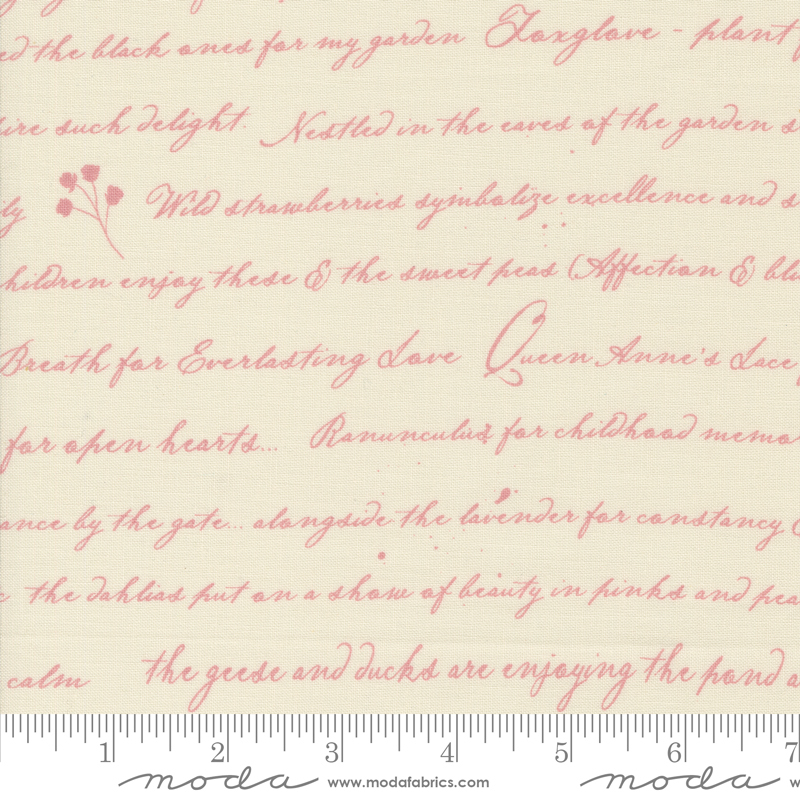 ed the black ones for my garden Foxglove - plant
ire such delight. Nestled in the eaves of the garden s
ily Wild strawberries symbolize excellence and s
hildren enjoy these & the sweet peas (Affection & bli
Breath for Everlasting Love Queen Anne's Lace
for open hearts... Ranunculus for childhood memo
ance by the gate... alongside the lavender for constancy
the dahlias put on a show of beauty in pinks and pea
calm the geese and ducks are enjoying the pond a
1 2 3 4 5 6 7
moda www.modafabrics.com moda w